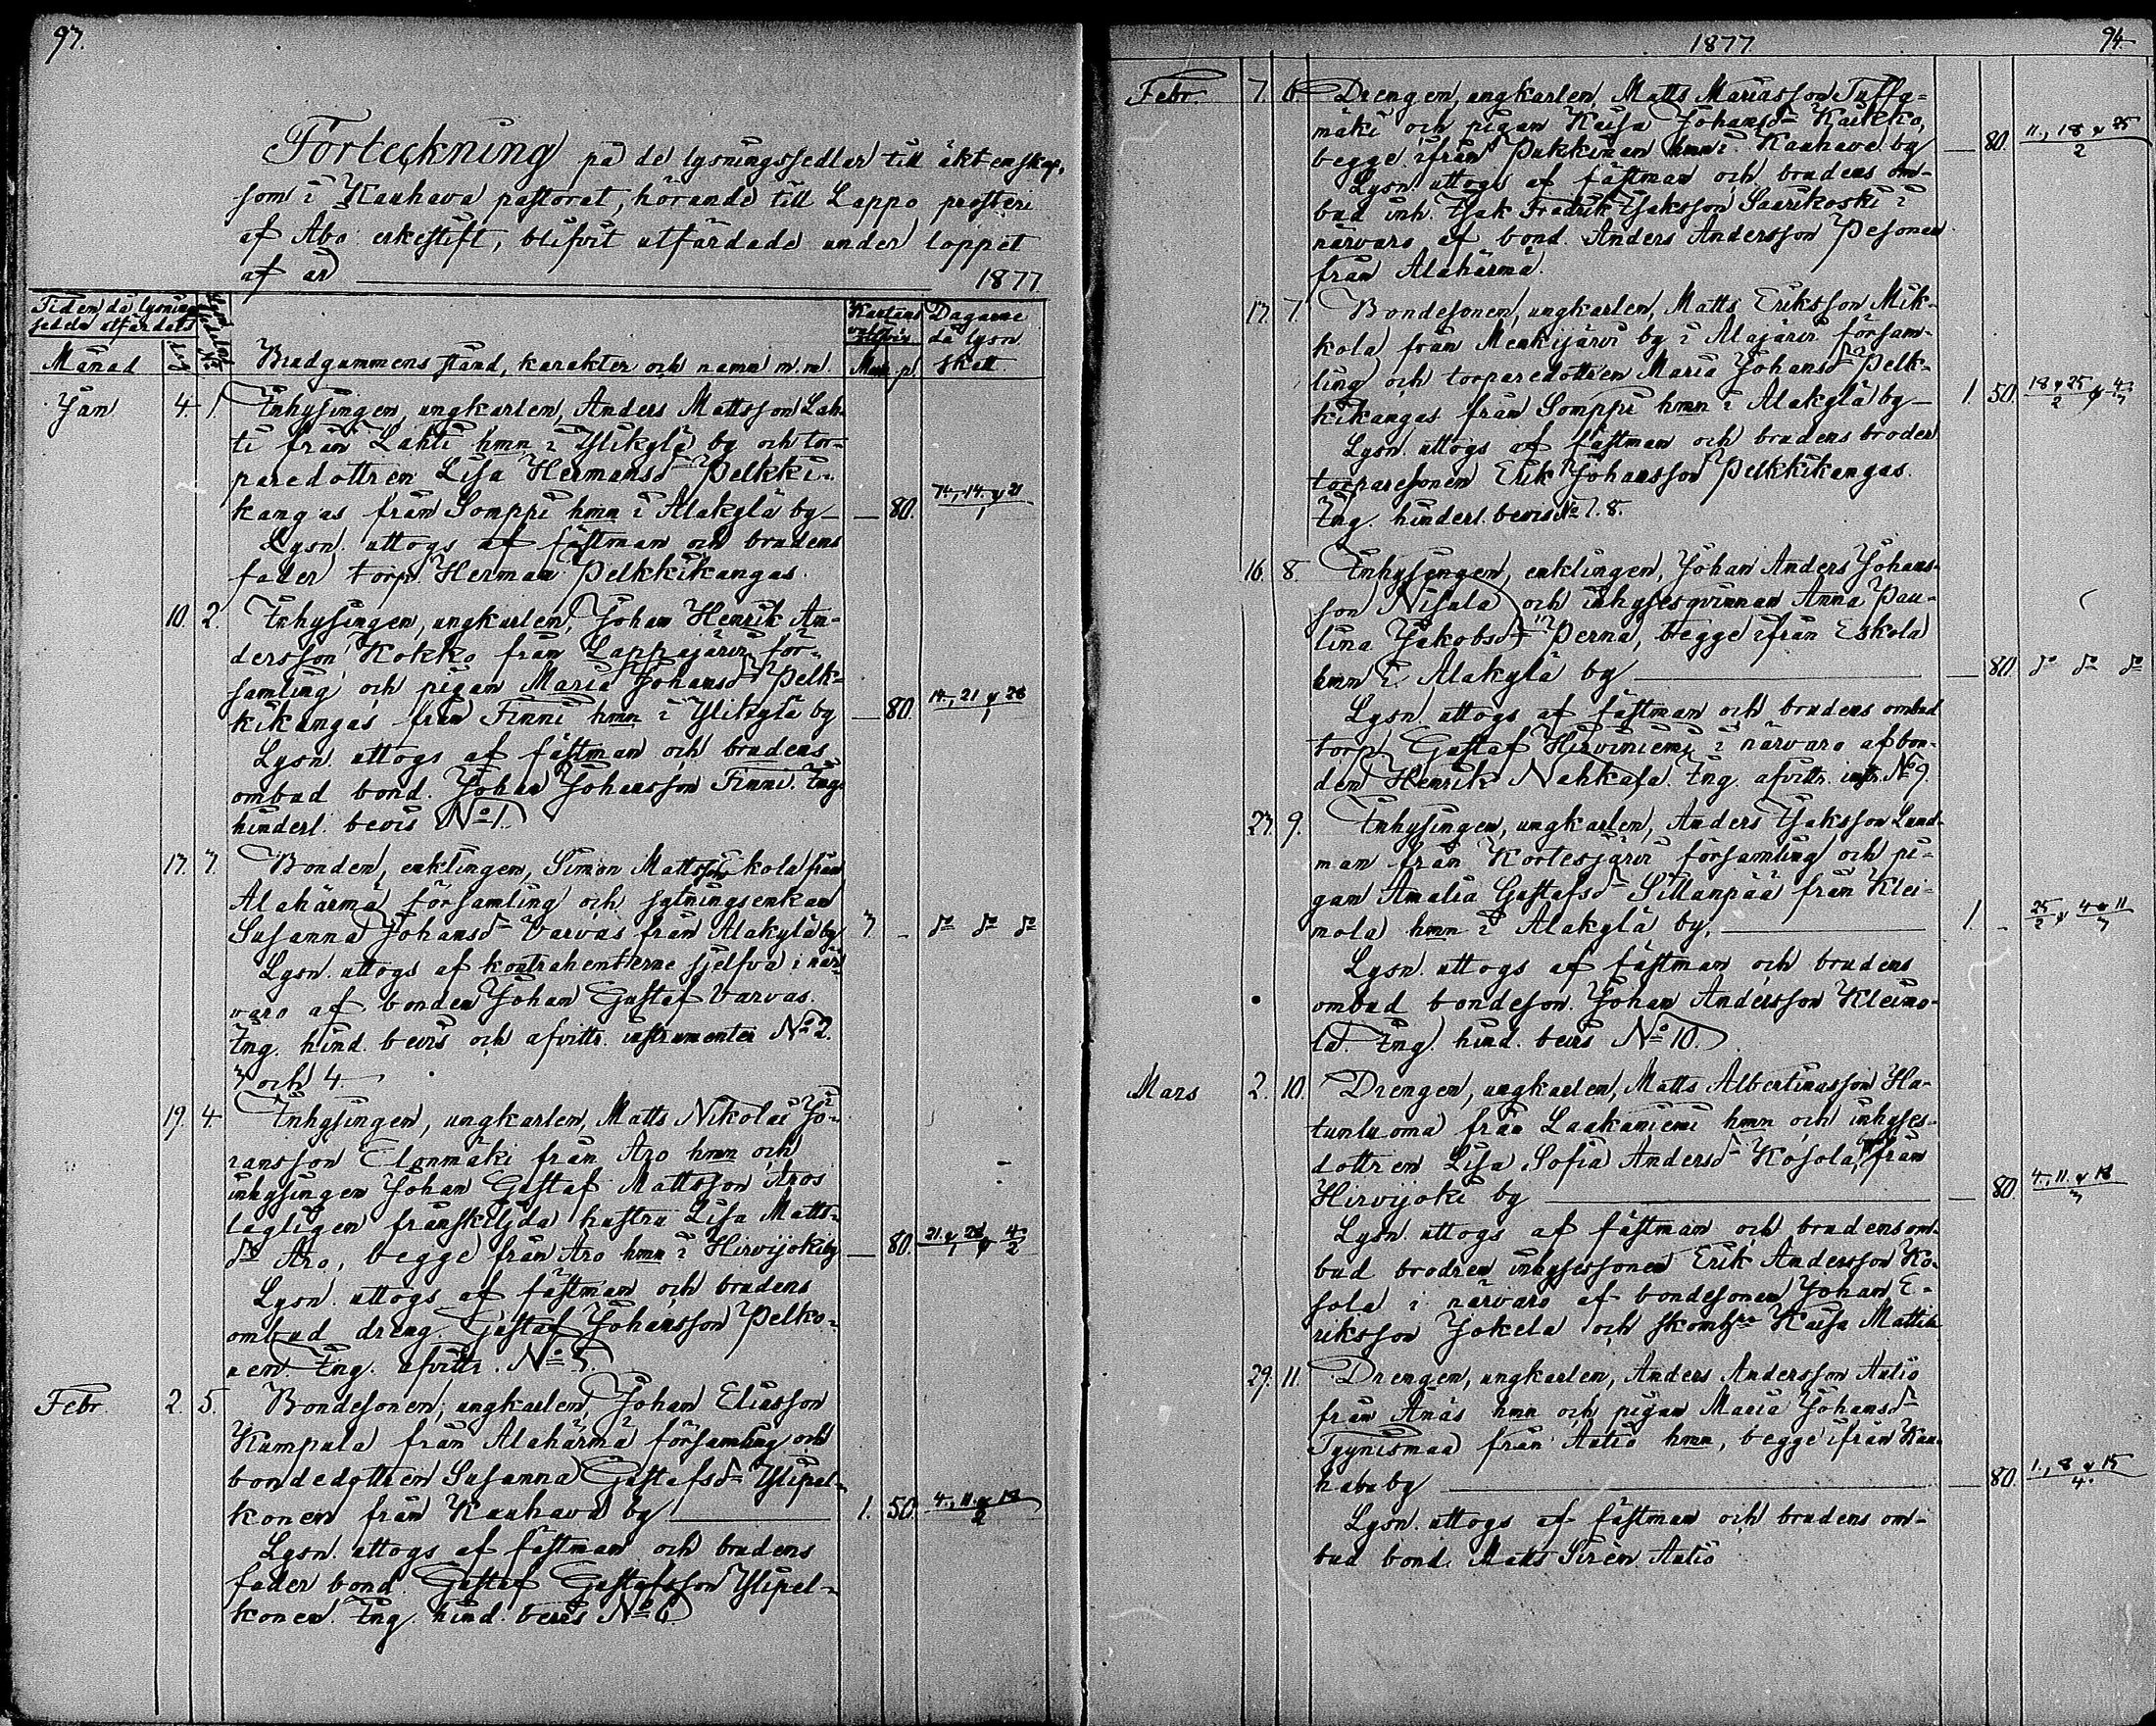 93.
Förteckning på de lysningssedlar till äktenskap,
som i Kauhava pastorat, hörande till Lappo prosteri
af Åbo erkestift, blifvit utfärdade under loppet
af år 1877
Tiden då lysnings
sedeln utfärdats
Månad
Dag
Brudgummens stånd, karakter och namn m.m.
Mark p.
Dagarne
då lysn.
skett.
Jan 4. 1. Inhysingen, ungkarlen, Anders Mattsson Lah-
ti från Lahti hmn i Ylikylä by och tor-
paredottren Lisa Hermansdr Pelkki-
kangas från Somppi hmn i Alakylä by — — 80. 7., 14. & 21/1
Lysn. uttogs af fästman och brudens
fader torp. Herman Pelkkikangas.
10. 2. Inhysingen, ungkarlen, Johan Henrik An-
dersson Kokko från Lappajärvi för-
samling och pigan Maria Johansdr Pelk-
kikangas från Finni hmn i Ylikylä by — 80. 14., 21 & 28/1
Lysn. uttogs af fästman och brudens
ombud bond. Johan Johansson Finni. Ing.
hinderl. bevis No 1.
17. 3. Bonden, enklingen, Simon Mattsson Ekola från
Alahärmä församling och sytningsenkan
Susanna Johansdr Varvas från Alakylä by 3. — do do do
Lysn. uttogs af kontrahenterne sjelfva i när-
varo af bonden Johan Gustaf Varvas.
Ing. hind. bevis och afvittr. instrumenter No 2.
3 och 4.
19. 4. Inhysingen, ungkarlen, Matts Nikolai Jö-
ransson Elonmäki från Aro hmn och
inhysingen Johan Gustaf Mattsson Aros
lagligen frånskiljda hustru Lisa Matts-
dr Aro, begge från Aro hmn i Hirvijoki by — 80. 21 & 28/1 & 4/2
Lysn. uttogs af fästman och brudens
ombud dreng. Gustaf Johansson Pelko-
nen. Ing. afvittr. No 5.
Febr. 2. 5. Bondesonen, ungkarlen, Johan Eliasson
Kumpula från Alahärmä församling och
bondedottren Susanna Gustafsdr Ylipel-
konen från Kauhava by 1. 50. 4., 11. & 18/2
Lysn. uttogs af fästman och brudens
fader bond. Gustaf Gustafsson Ylipel-
konen. Ing. hind. bevis No 6
1877. 94.
Febr. 7. 6. Drengen, ungkarlen, Matts Mariasson
mäki och pigan Kaisa Johansdr Kaikko,
begge ifrån Pukkinen hmn i Kauhava by — 80. 11., 18 & 25/2
Lysn. uttogs af fästman och brudens om-
bud inh. Isak Fredrik Isaksson Saarikoski i
närvaro af bond. Anders Andersson Pesonen
från Alahärmä.
13. 7. Bondesonen, ungkarlen, Matts Eriksson Mik-
kola från Menkijärvi by i Alajärvi försam-
ling och torparedottren Maria Johansdr Pelk-
kikangas från Somppi hmn i Alakylä by — 1. 50. 18 & 25/2 & 4/3
Lysn. uttogs af fästman och brudens broder
torparesonen Erik Johansson Pelkkikangas.
Ing. hinderl. bevis No 7. 8.
16. 8. Inhysingen, enklingen, Johan Anders Johans-
son Nisula och inhysesqvinnan Anna Pau-
lina Jakobsdr Perna, begge ifrån Eskola
hmn i Alakylä by — 80. do do do
Lysn. uttogs af fästman och brudens ombud
torp. Gustaf Hirviniemi i närvaro af bon-
den Henrik Nahkala. Ing. afvittr. instr. No 9.
23. 9. Inhysingen, ungkarlen, Anders Isaksson Lund-
man från Kortesjärvi församling och pi-
gan Amalia Gustafsdr Sillanpää från Klei-
mola hmn i Alakylä by, 1. - 25/2 & 4 & 11/3
Lysn. uttogs af fästman och brudens
ombud bondeson. Johan Andersson Kleimo-
la. Ing. hind. bevis No 10.
Mars 2. 10. Drengen, ungkarlen, Matts Albertinasson Ha-
tunluoma från Laakaniemi hmn och inhyses-
dottren Lisa Sofia Andersdr Kosola, från
Hirvijoki by — 80. 4., 11. & 18/3
Lysn. uttogs af fästman och brudens om-
bud brodren inhysessonen Erik Andersson Ko-
sola i närvaro af bondesonen Johan E-
riksson Jokela och Kaisa Mattila
29. 11. Drengen, ungkarlen, Anders Andersson Autio
från Änäs hmn och pigan Maria Johansdr
Tyynismaa från Autio hmn, begge ifrån Kau-
hava by — 80. 1., 8 & 15/4.
Lysn. uttogs af fästman och brudens om-
bud bond. Matts Sirén Autio